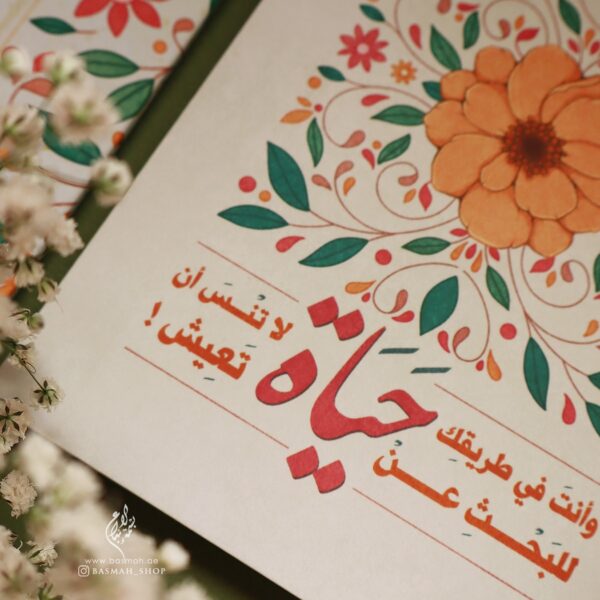 وأنتَ في طريقكِ
للبَحْثِ عَـنْ
حَيَاة
لا تَنْسَ أن
تَعِيش !
www.basmah.ae
BASMAH_SHOP